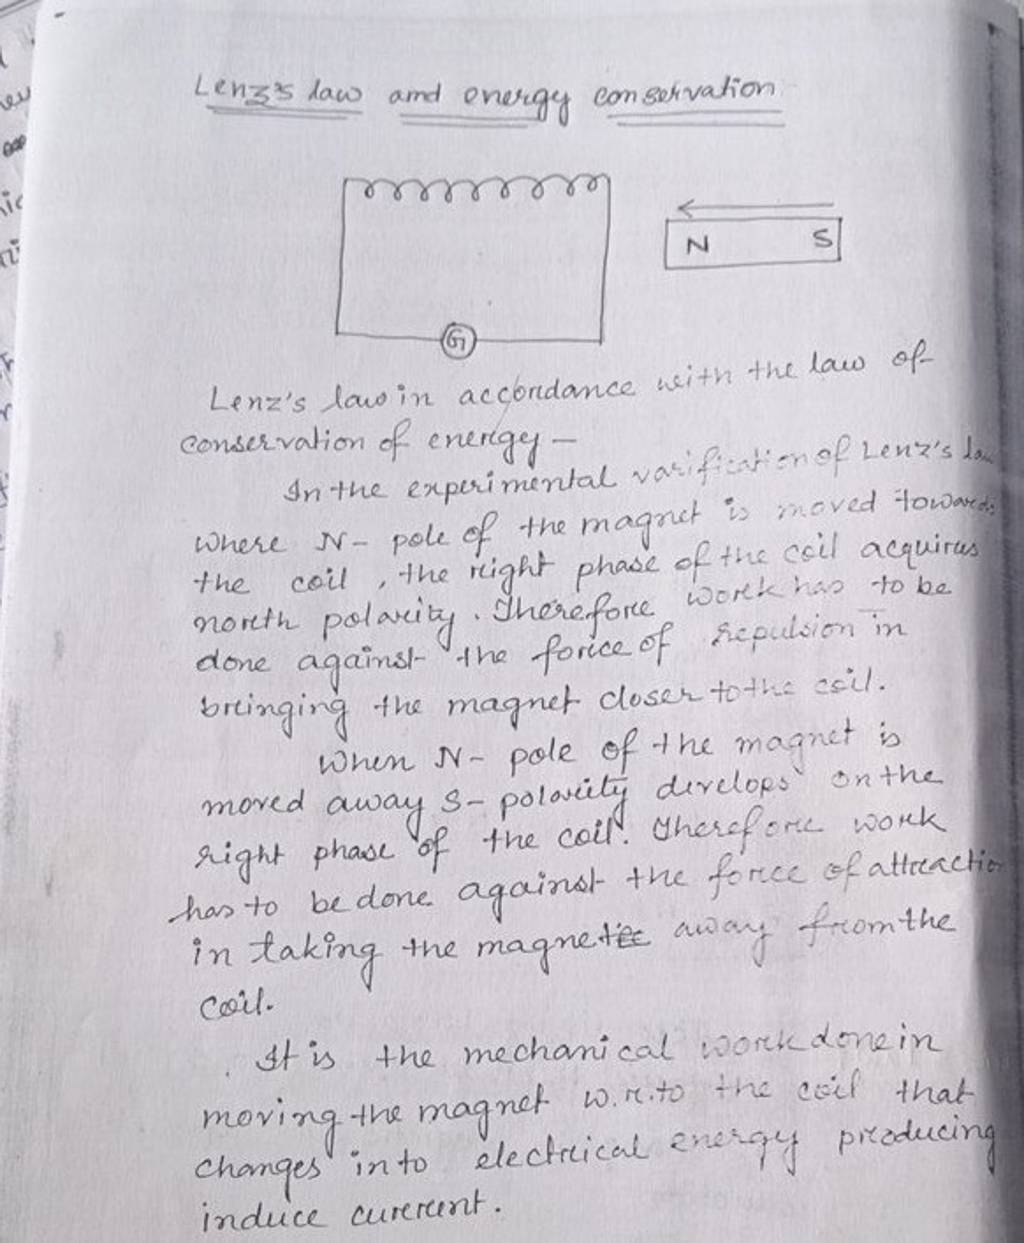 Lenz's law and energy conservation
N S
G
Lenz's law in accordance with the law of
conservation of energy —
In the experimental varification of Lenz's law
where N- pole of the magnet is moved towards
the coil, the right phase of the coil acquires
north polarity. Therefore work has to be
done against the force of repulsion in
bringing the magnet closer to the coil.
When N- pole of the magnet is
moved away S- polarity develops on the
right phase of the coil. Therefore work
has to be done against the force of attraction
in taking the magnet away from the
coil.
It is the mechanical work done in
moving the magnet w.r.to the coil that
changes into electrical energy producing
induce current.